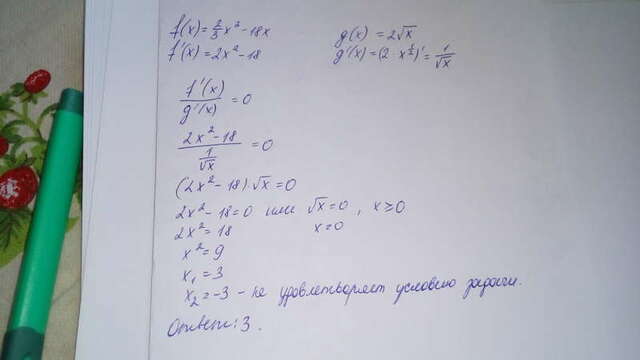 f(x) = 2/3 x² - 18x
g(x) = 2√x
f'(x) = 2x² - 18
g'(x) = (2 · x^(1/2))' = 1/√x
f'(x)/g'(x) = 0
(2x² - 18)/(1/√x) = 0
(2x² - 18) · √x = 0
2x² - 18 = 0 или √x = 0, x ≥ 0
2x² = 18 x = 0
x² = 9
x₁ = 3
x₂ = -3 - не удовлетворяет условию задачи.
Ответ: 3.